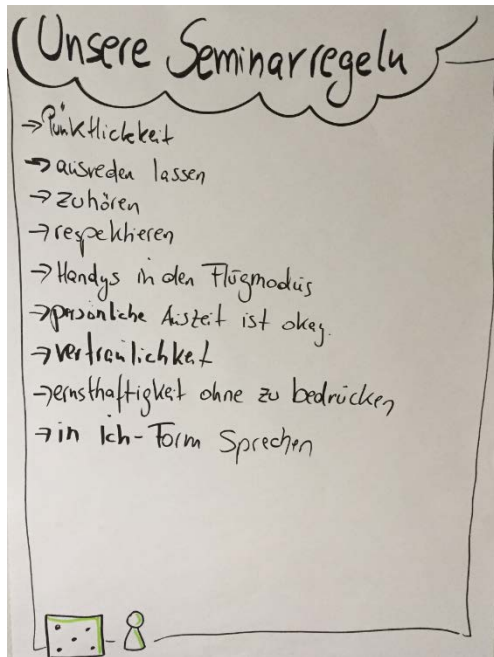 Unsere Seminarregeln
→ Pünktlickkeit
→ ausreden lassen
→ zuhören
→ respektieren
→ Handys in den Flugmodus
→ persönliche Auszeit ist okay.
→ vertraulichkeit
→ ernsthaftigkeit ohne zu bedrücken
→ in Ich-Form Sprechen